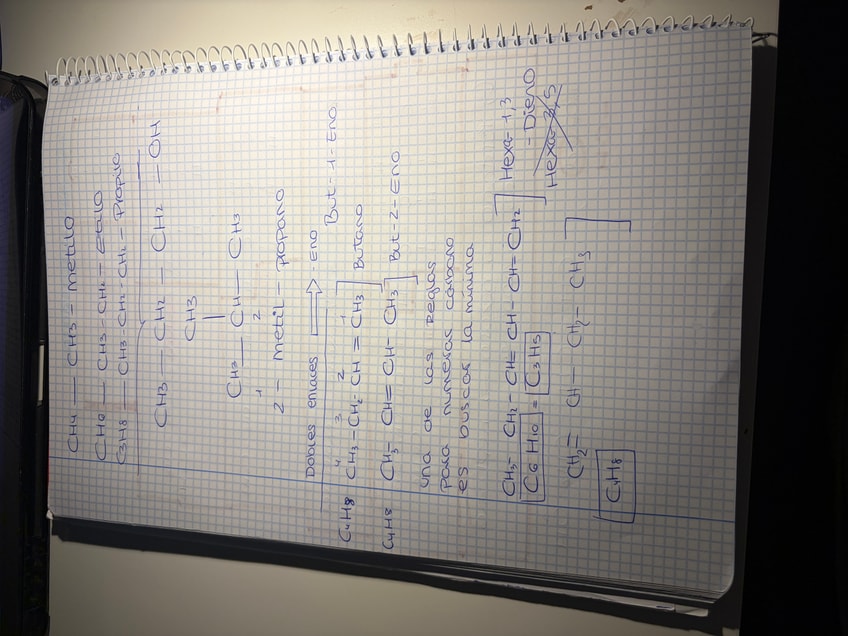 CH4 — CH3 - metilo
CH6 — CH3 - CH2 - Etilo
C3H8 — CH3 - CH2 - CH2 - Propilo
CH3 — CH2 — CH2 — OH
CH3
CH3 — CH — CH3
1 2
2 - metil - propano
Dobles enlaces ⇒ - Eno
But - 1 - Eno
4 3 2 1
C4H8 CH3 - CH2 - CH = CH3 ] Butano
C4H8 CH3 - CH = CH - CH3 ] But - 2 - Eno
una de las Reglas
para numerar carbono
es buscar la minima
CH3 - CH2 - CH = CH - CH = CH2 ] Hexa - 1,3
- Dieno
C6 H10 = C3 H5
CH2 = CH — CH2 - CH3 ]
C4H8